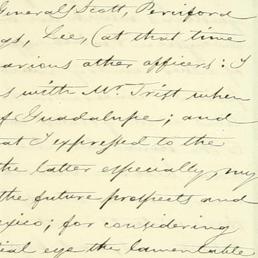 Generals Scott, Persiford
Lee, (at that time
various other officers: I
s with Mr. Trist when
of Guadalupe; and
at I expressed to the
the latter especially, my
the future prospects and
exico; for considering
tial eye the lamentable